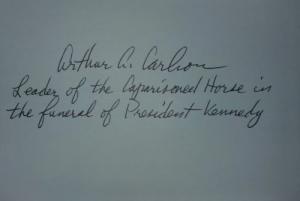 Arthur A. Carlson
Leader of the Caparisoned Horse in
the funeral of President Kennedy